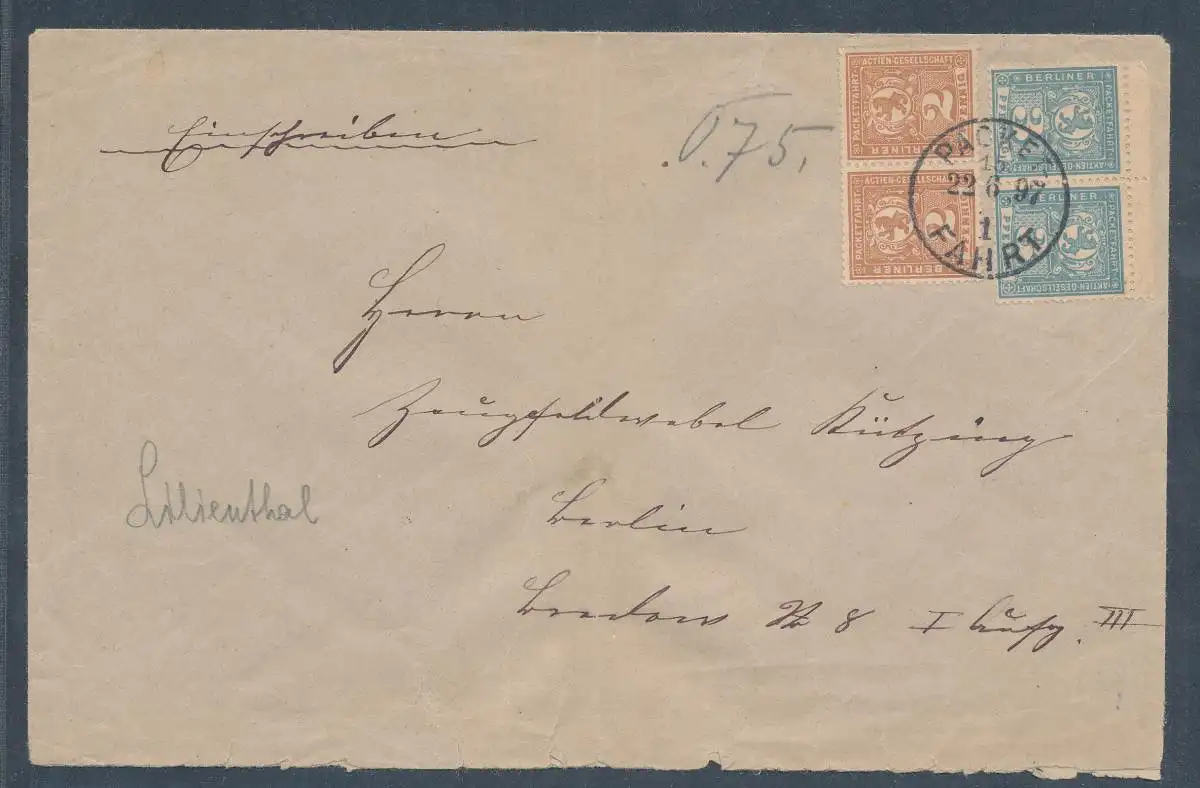 Einschreiben
0.75,
ACTIEN-GESELLSCHAFT
PACKETFAHRT
2
BERLINER
ACTIEN-GESELLSCHAFT
PACKETFAHRT
2
BERLINER
BERLINER
PACKETFAHRT
AKTIEN-GESELLSCHAFT
BERLINER
PACKETFAHRT
AKTIEN-GESELLSCHAFT
PACKET
22 6 97
1
FAHRT
Herrn
Zeugfeldwebel Kützing
Lilienthal
Berlin
Bredow Str 8 I Aufg. III